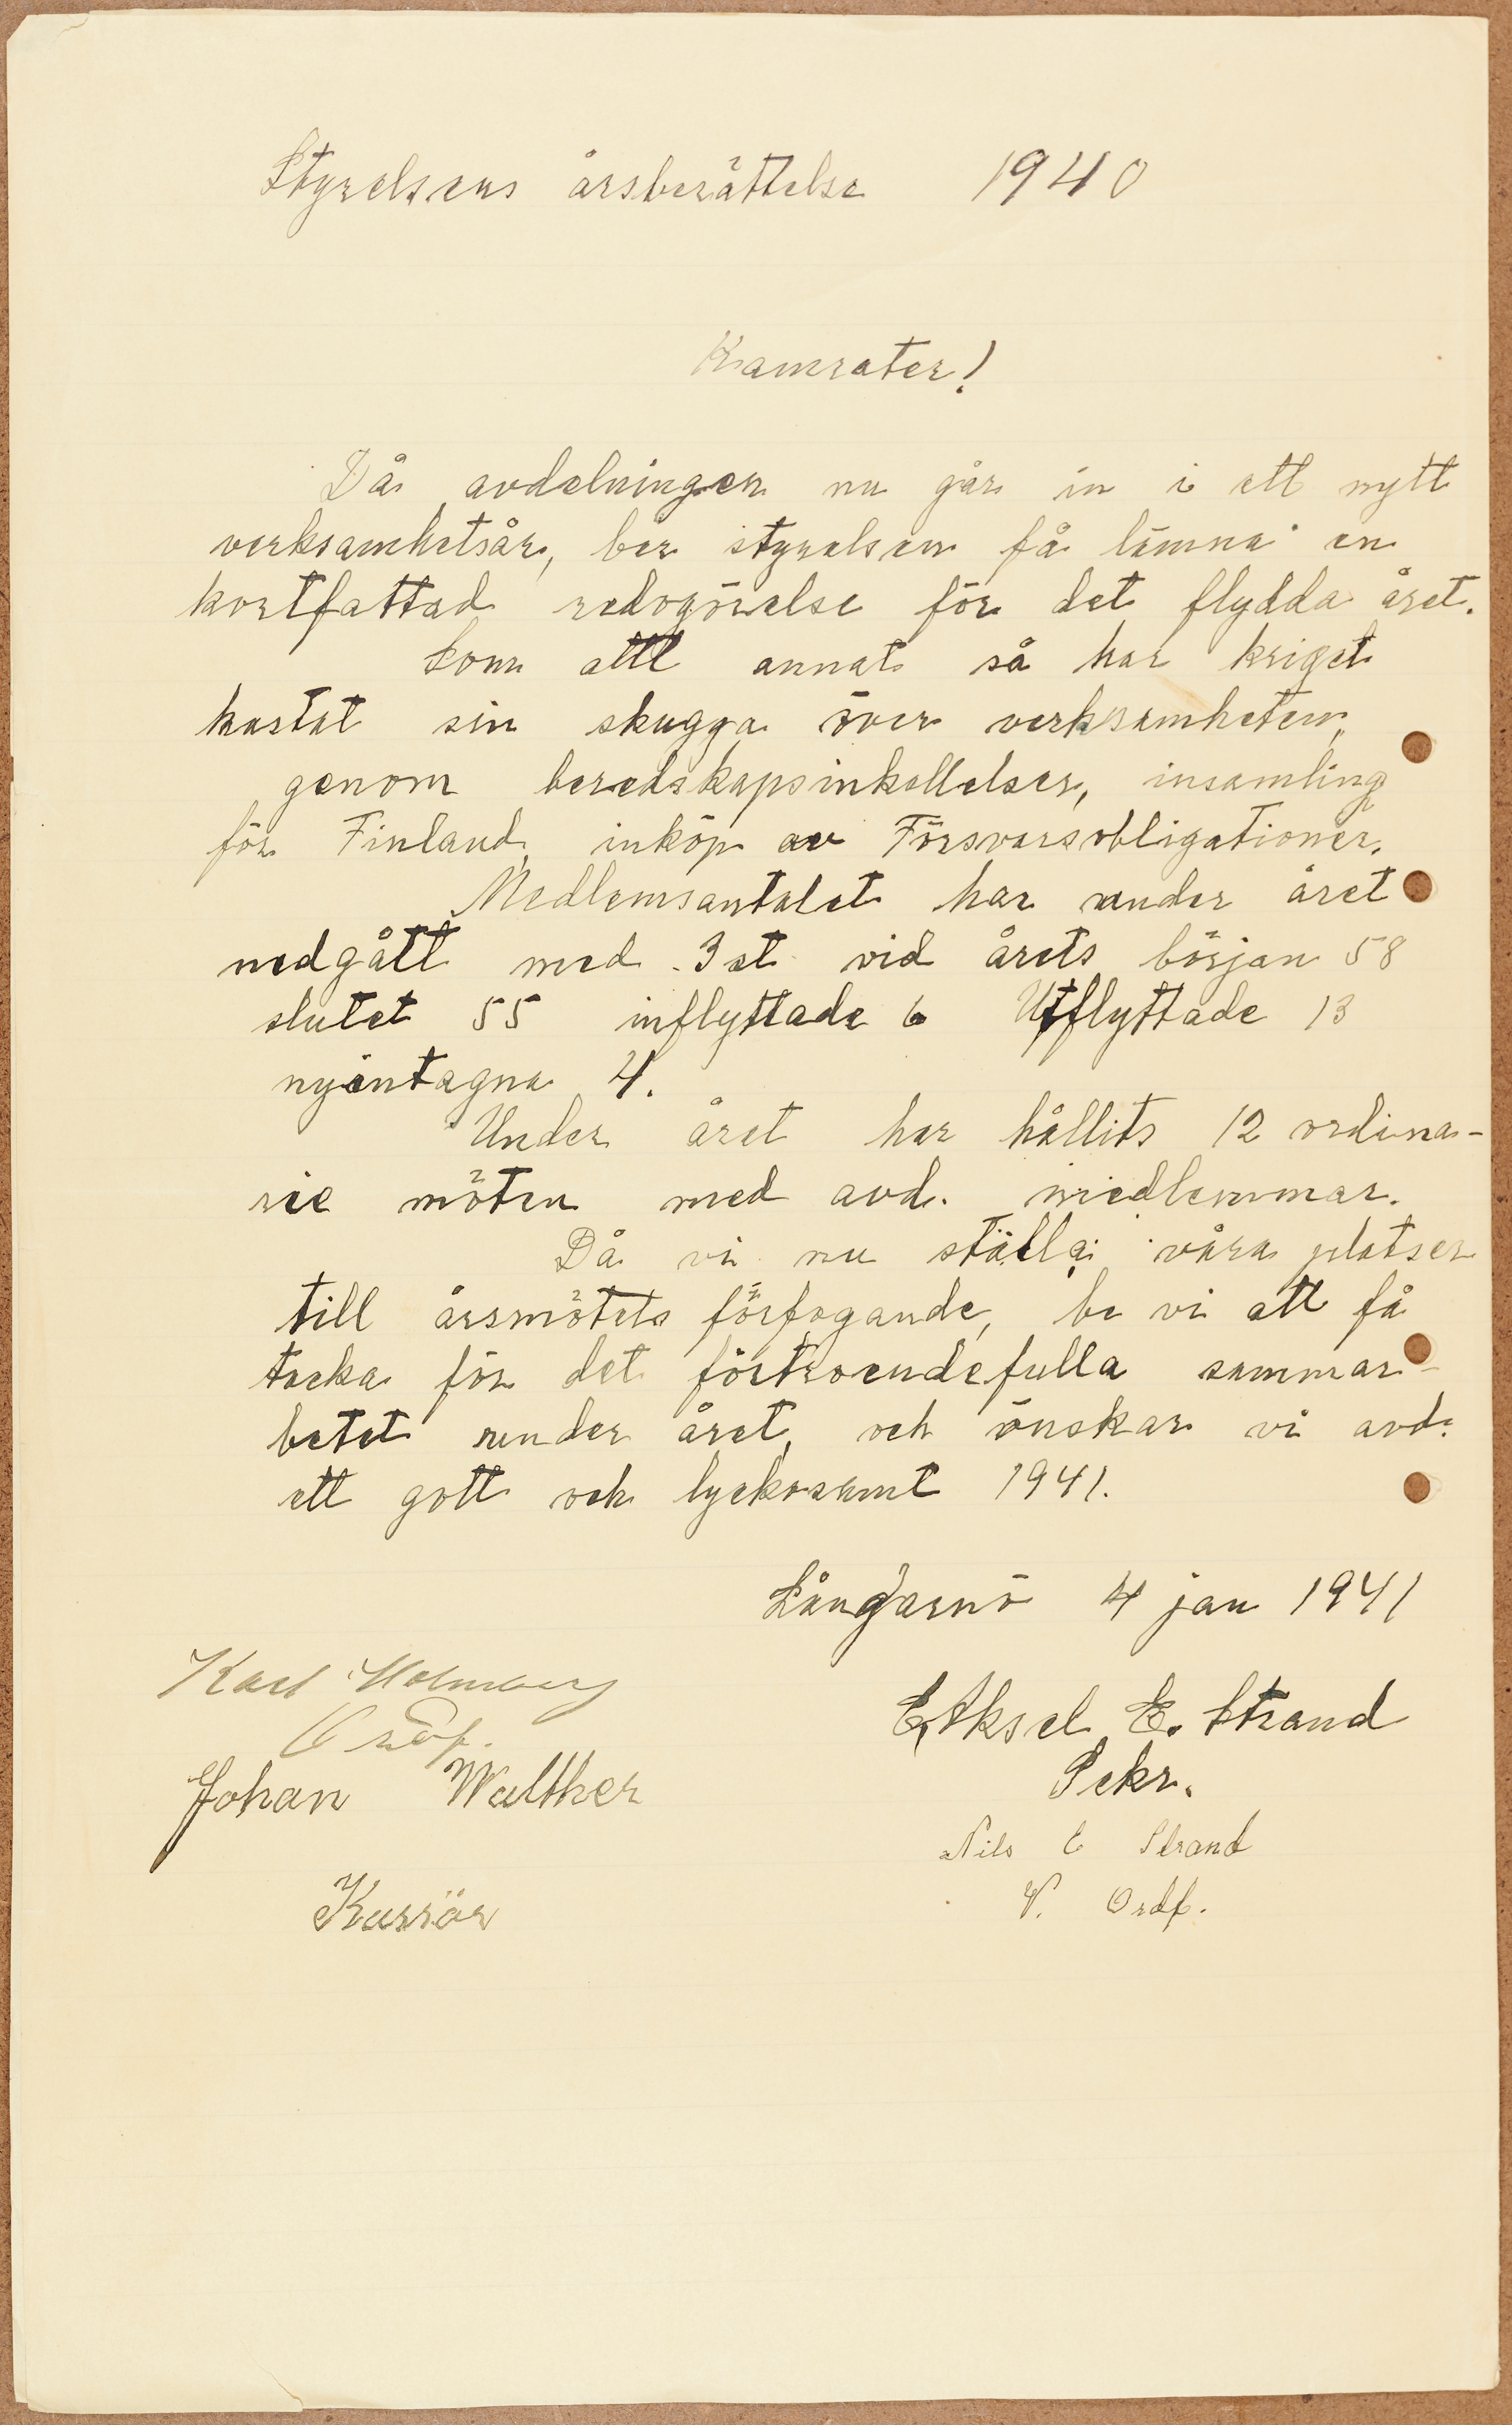 Styrelsens årsberättelse 1940
Kamrater!
Då avdelningen nu går in i ett nytt
verksamhetsår, ber styrelsen få lämna en
kortfattad redogörelse för det flydda året.
Som allt annat så har kriget
kastat sin skugga över verksamheten,
genom beredskapsinkallelser, insamling
för Finland, inköp av Försvarsobligationer.
Medlemsantalet har under året
nedgått med 3 st vid årets början 58
slutet 55 inflyttade 6 Utflyttade 13
nyintagna 4.
Under året har hållits 12 ordina-
rie möten med avd. medlemmar.
Då vi nu ställa våra platser
till årsmötets förfogande, be vi att få
tacka för det förtroendefulla sammar-
betet under året, och önskar vi avd.
ett gott och lyckosamt 1941.
Långarnö 4 jan 1941
Karl Holmberg
Ordf.
Johan Walther
Kassör
E, Aksel E. Strand
Sekr.
Nils E Strand
V. Ordf.